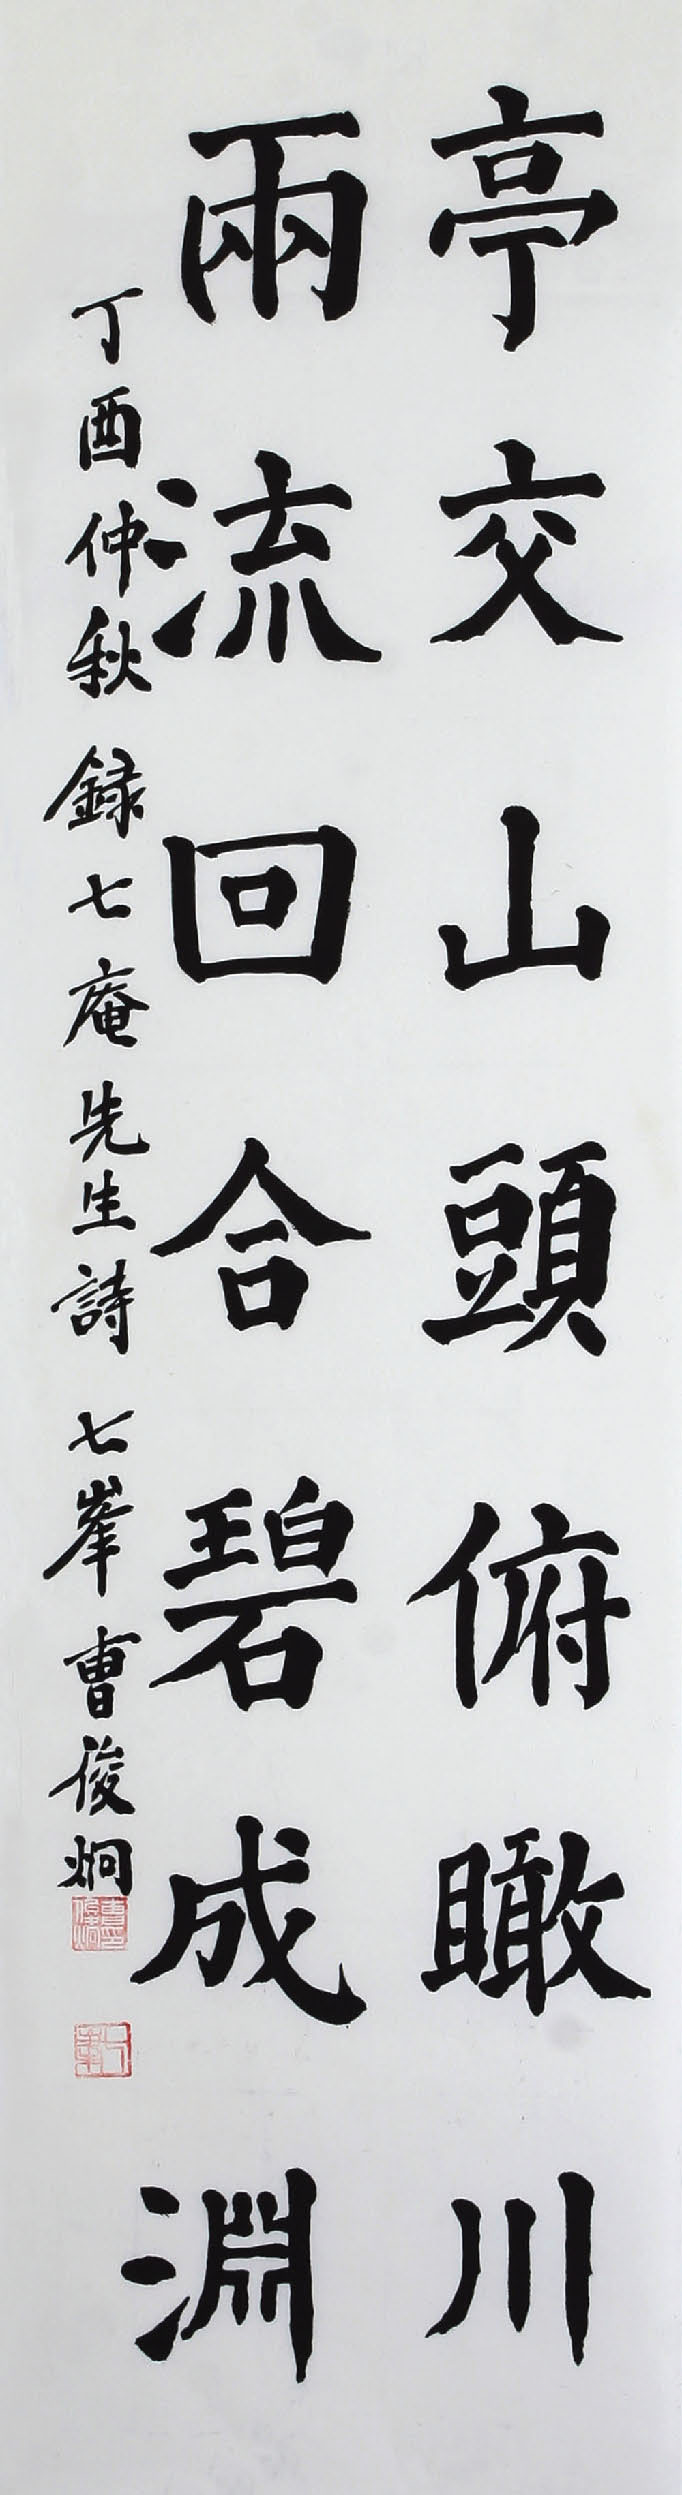 亭交山頭俯瞰川
兩流回合碧成淵
丁酉仲秋錄七庵先生詩七峯曺俊炯